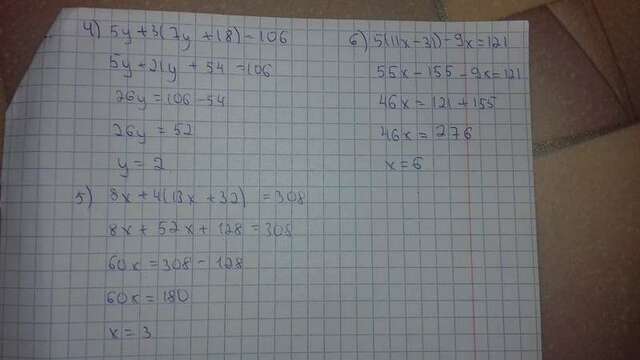 4) 5y+3(7y+18)=106
5y+21y+54=106
26y=106-54
26y=52
y=2
5) 8x+4(13x+32)=308
8x+52x+128=308
60x=308-128
60x=180
x=3
6) 5(11x-31)-9x=121
55x-155-9x=121
46x=121+155
46x=276
x=6